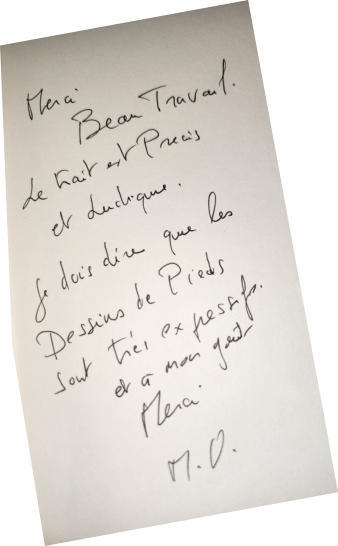 Merci
Beau Travail.
Le trait est Précis
et Ludique.
Je dois dire que les
Dessins de Pieds
sont très expressifs.
et à mon goût
Merci
M.O.